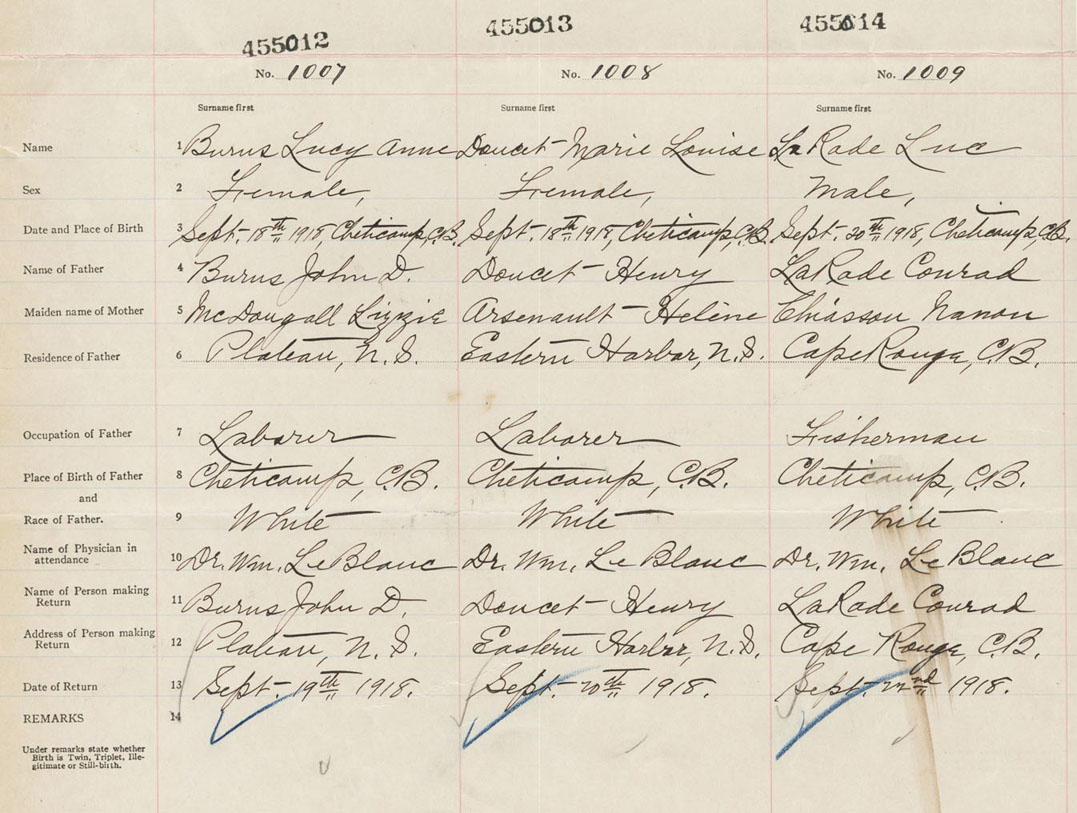 455012 455013 455014
No. 1007 No. 1008 No. 1009
Surname first Surname first Surname first
Name 1 Burns Lucy Anne Doucet Marie Louise LaRade Luc
Sex 2 Female, Female, Male,
Date and Place of Birth 3 Sept. 18th 1918, Cheticamp, C.B. Sept. 18th 1918, Cheticamp, C.B. Sept. 20th 1918, Cheticamp, C.B.
Name of Father 4 Burns John D. Doucet Henry LaRade Conrad
Maiden name of Mother 5 McDougall Lizzie Arsenault Helène Chiasson Nanon
Residence of Father 6 Plateau, N.S. Eastern Harbor, N.S. Cape Rouge, C.B.
Occupation of Father 7 Laborer Laborer Fisherman
Place of Birth of Father 8 Cheticamp, C.B. Cheticamp, C.B. Cheticamp, C.B.
and
Race of Father. 9 White White White
Name of Physician in
attendance 10 Dr. Wm. LeBlanc Dr. Wm. LeBlanc Dr. Wm. LeBlanc
Name of Person making
Return 11 Burns John D. Doucet Henry LaRade Conrad
Address of Person making
Return 12 Plateau, N.S. Eastern Harbor, N.S. Cape Rouge, C.B.
Date of Return 13 Sept. 19th 1918. Sept. 20th 1918. Sept. 22nd 1918.
REMARKS 14
Under remarks state whether
Birth is Twin, Triplet, Ille-
gitimate or Still-birth.